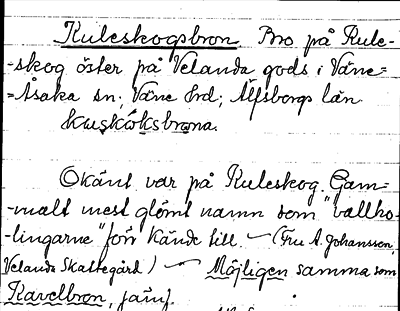 Kuleskogsbron. Bro på Kule-
-skog öster på Velanda gods i Väne=
=Åsaka sn; Väne Hrd; Älfsborgs län
Kuskåksbrona.
Okänt var på Kuleskog. Gam=
-malt mest glömt namn som "vallho-
-lingarne" förr kände till. — (Fru A. Johansson,
Velanda Skattegård) — Möjligen samma som
Kavelbron, jämf.